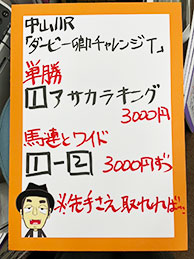 中山11R
「ダービー卿チャレンジT」
単勝
1アサカラキング
3000円
馬連とワイド
1-2 3000円ずつ
※先手さえ取れれば…